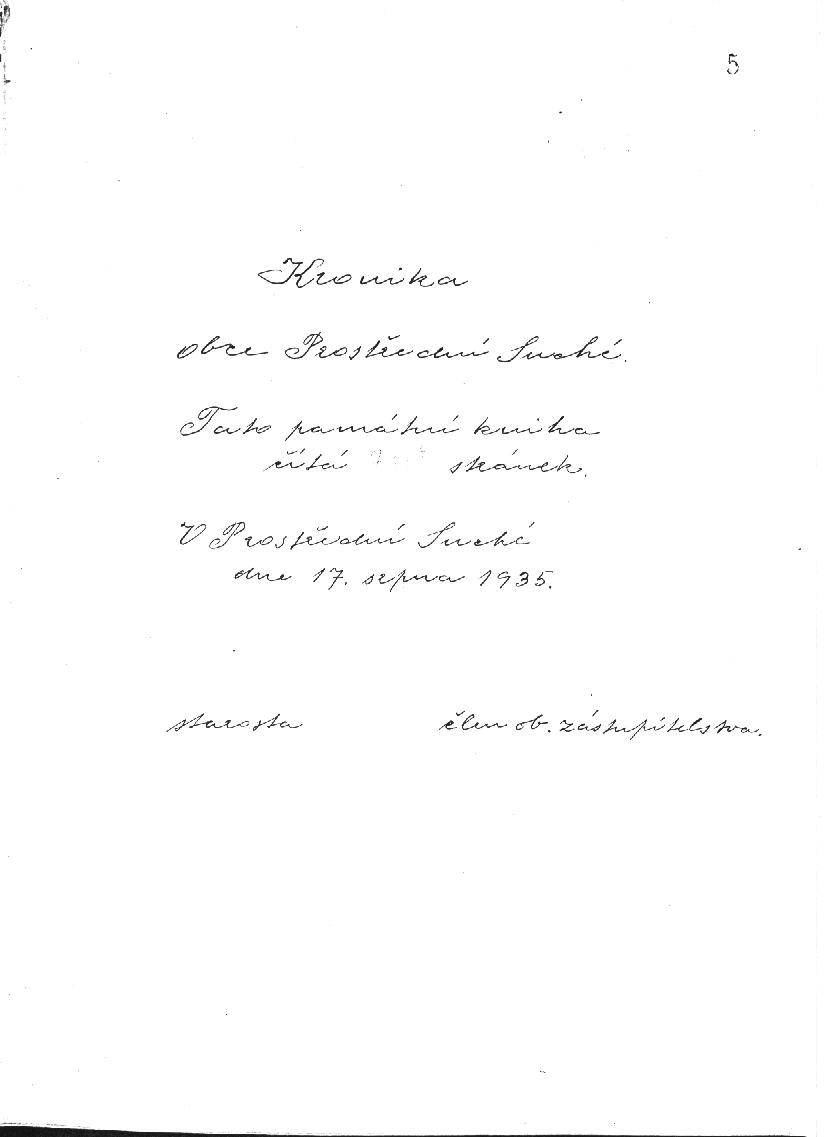 5
Kronika
obce Prostřední Suché.
Tato památní kniha
čítá stránek.
V Prostřední Suché
dne 17. srpna 1935.
starosta člen ob. zástupitelstva.